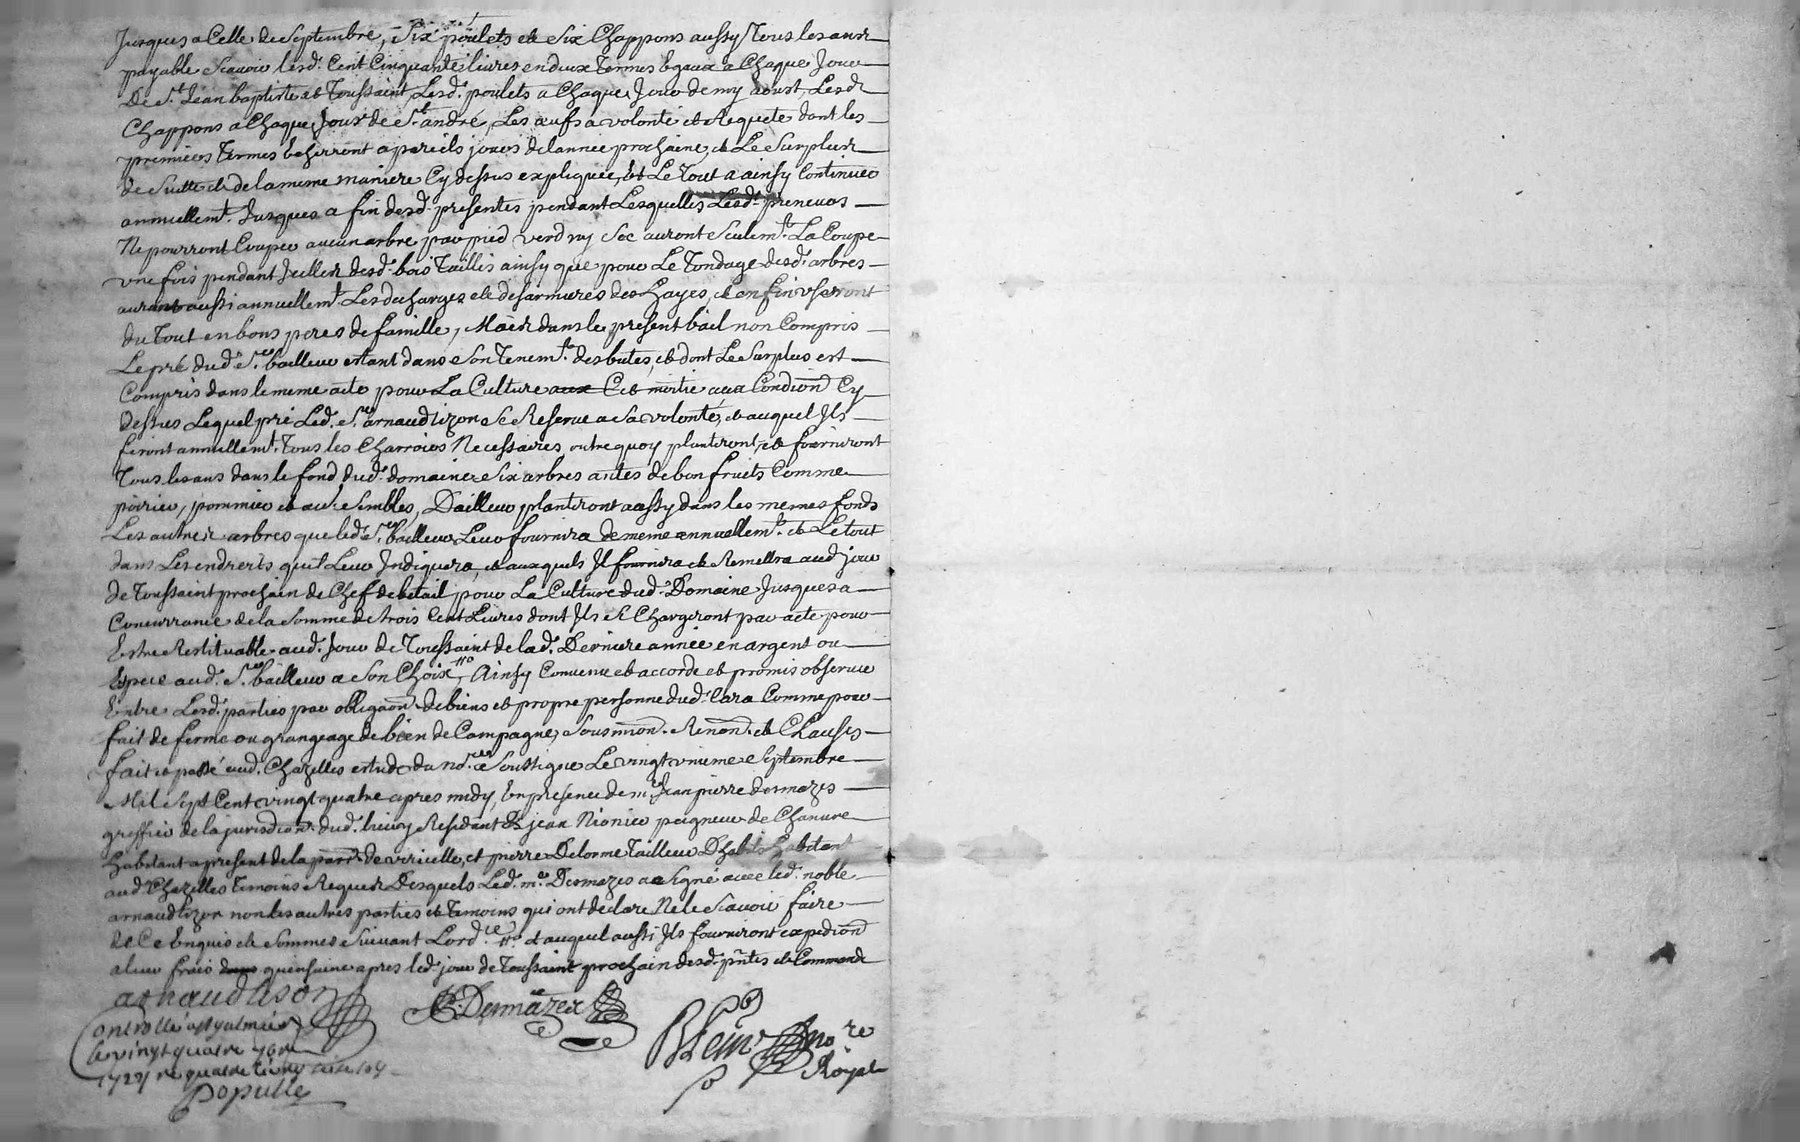 Jusques a Celle de Septembre, Six poulets et Six Chappons aussy Tous les ans
payable Scavoir lesd. Cent Cinquante livres en deux Termes Egaux a Chaque Jour
De St. Jean baptiste et Toussaint, Lesd. poulets a Chaque Jour de my aoust, Lesd.
Chappons a Chaque Jour de St. andré, Les œufs a volonté et Requete dont les
premiers Termes Echerront a pareils jours de lannee prochaine, et Le Surplus
de Suitte et de la meme maniere Cy dessus expliquée, Et Le Tout a ainsy Continuer
annuellemt. Jusques a fin desd. presentes pendant Lesquelles Lesd. preneurs
Ne pourront Couper aucun arbre par pied verd ny Sec auront Seulemt. La Coupe
une fois pendant Icelles desd. bois Taillis ainsy que pour Le Tondage desd. arbres
auront aussi annuellemt. Les decharges et desarmures des hayes, et enfin useront
du Tout en bons peres de famille, Mais dans le present bail non Compris
Le pré dud. Sr. bailleur estant dans Son Tenemt. des butes, et dont Le Surplus est
Compris dans le meme acte pour La Culture aux Condion Cy
dessus Lequel pré Led. Sr. arnaudtizon Se Reserve a Sa volonté, et auquel Ils
feront annuellemt. Tous les Charrois Necessaires, outre quoy planteront, et fourniront
Tous les ans dans le fond dud. domaine Six arbres antes de bon fruits Comme
poirier, pommier et au. Sembles, Dailleur planteront aussy dans les memes fonds
Les autres arbres que led. Sr. bailleur Leur fournira de meme annuellemt. et Le tout
dans Les endrerts quil Leur Indiquera, et auxquels Il fournira et Remettra aud. jour
de Toussaint prochain de Chef de betail pour La Culture dud. Domaine Jusques a
Concurrance de la Somme de trois Cent Livres dont Ils Se Chargeront par acte pour
Estre Restituable aud. Jour de Toussaint de lad. Derniere année en argent ou
Espece aud. Sr. bailleur a Son Choix, Ainsy Convenu et accordé et promis observer
Entre Lesd. parties par obligaon de biens et propre personne dud. Cara Comme pour
fait de ferme ou grangeage de bien de Campagne, Sousmion. Renon. et Clauses
fait et passé aud. Chazelles estude du nore. Soussigne Le vingt unieme Septembre
Mil Sept Cent vingt quatre apres midy, En presence de me. Jean pierre desmazes
greffier de la jurisdion. dud. Resident Et jean peigneur de Chanvre
habitant apresent de la parr. de viricelle, et pierre Delorme Tailleur Dhabits habitant
aud. Chazelles Temoins Requis Desquels Led. me. Desmazes a Signé avec led. noble
arnaudtizon non les autres parties et Temoins qui ont declare Ne le Scavoir faire
de Ce Enquis et Sommes Suivant Lordce. et auquel aussi Ils fourniront expedion
a leur frais quinsaine apres led. jour de Toussaint prochain desd. pntes et Commande
arnaudtison
Desmazes
Controllé a st galmier
le vingt quatre 7bre
1724 re quatre livres
Populle
nore
Royal